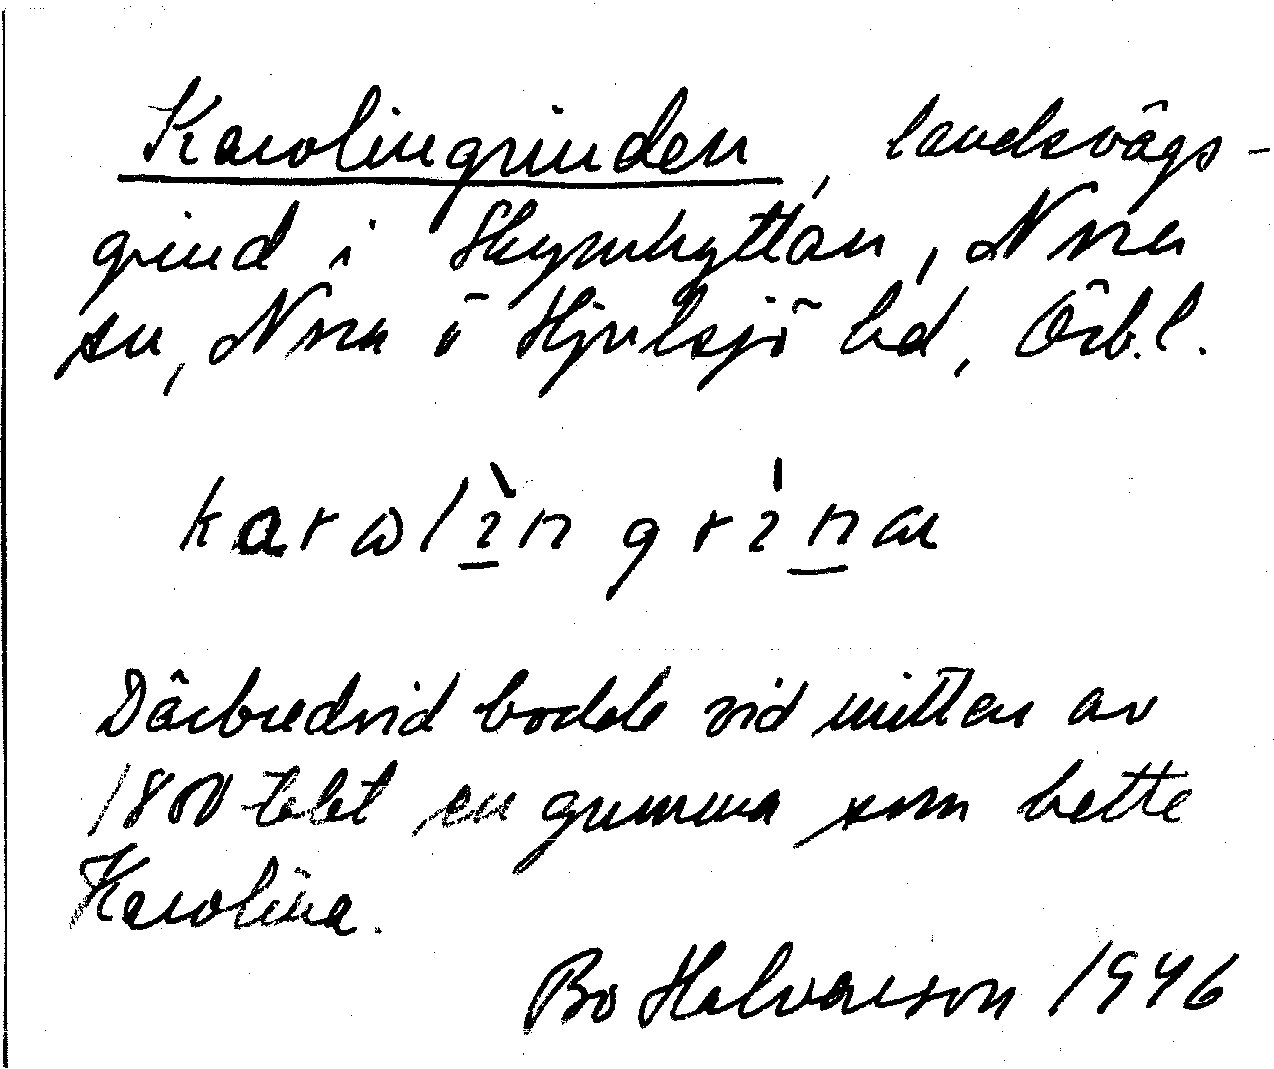 Karolingrinden, landsvägs-
grind i Skymhyttan, Nora
sn, Nora o Hjulsjö hd, Örb.l.
Därbredvid bodde vid mitten av
1800-talet en gumma som hette
Karolina.
Bo Halvarson 1946